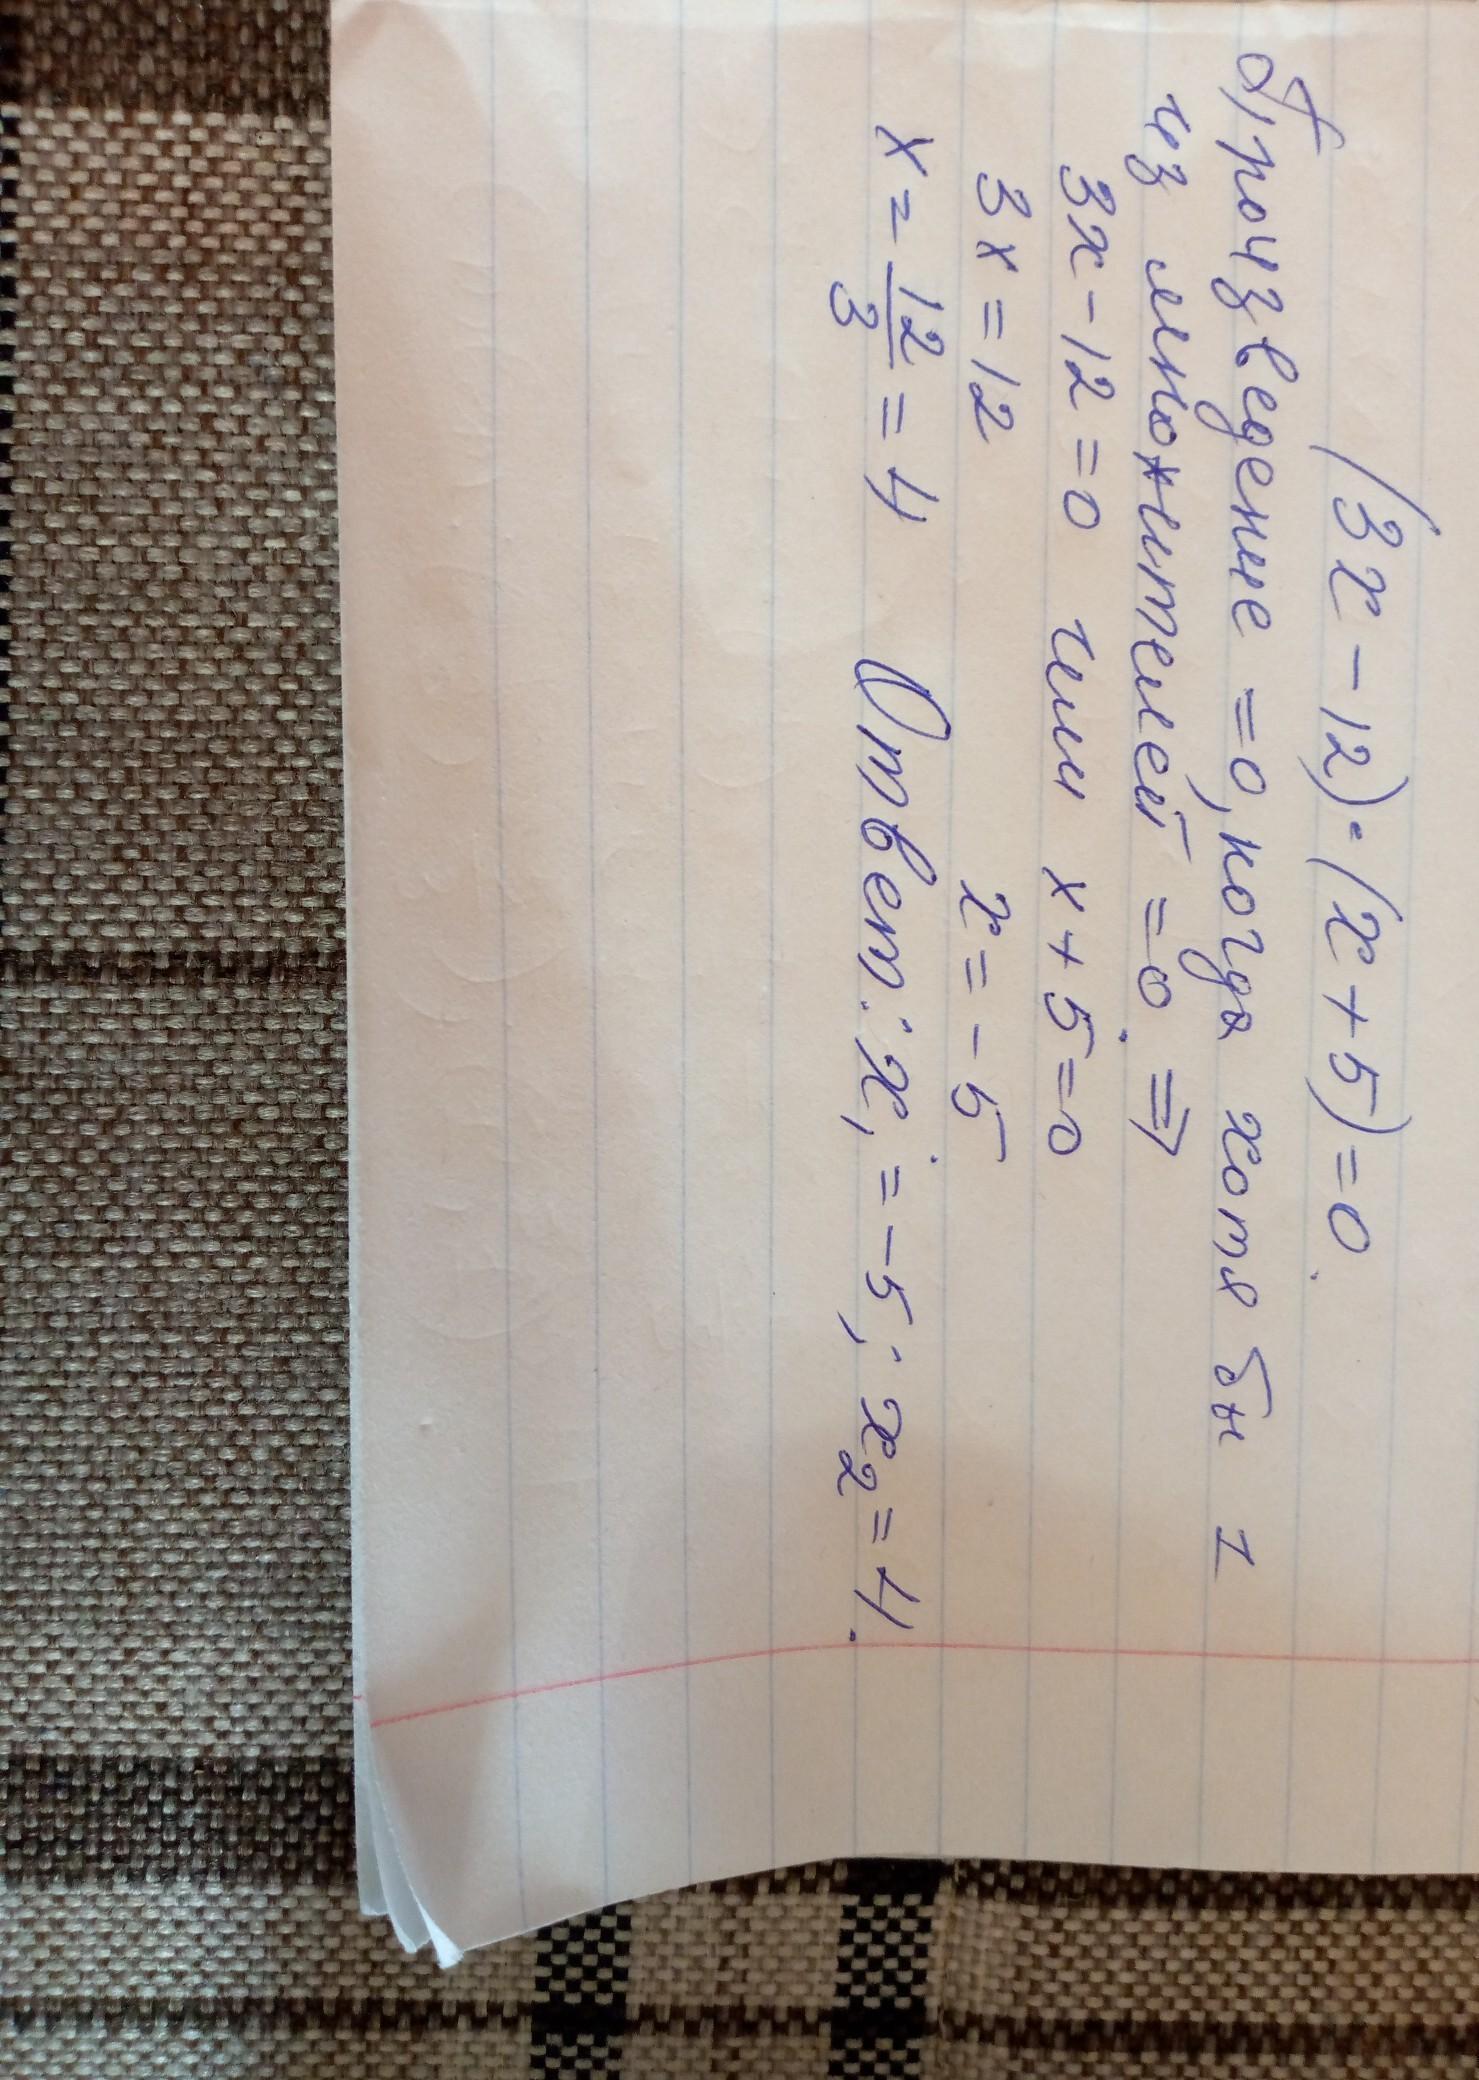 (3x-12)·(x+5)=0.
Произведение =0, когда хотя бы 1
из множителей =0. ⇒
3x-12=0 или x+5=0
3x=12 x=-5
x=12/3=4 Ответ: x₁=-5; x₂=4.